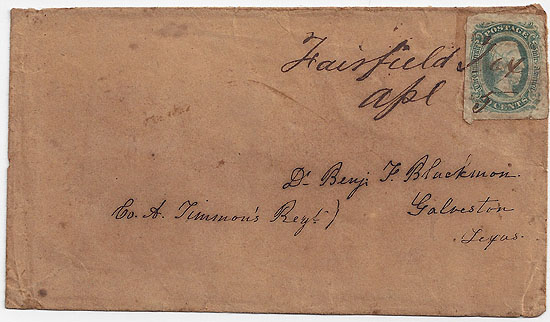 Fairfield Tex
Apl 5
POSTAGE
CENTS
Dr Benj. F. Blackmon.
Co. A. Timmon's Regt)
Galveston
Texas.